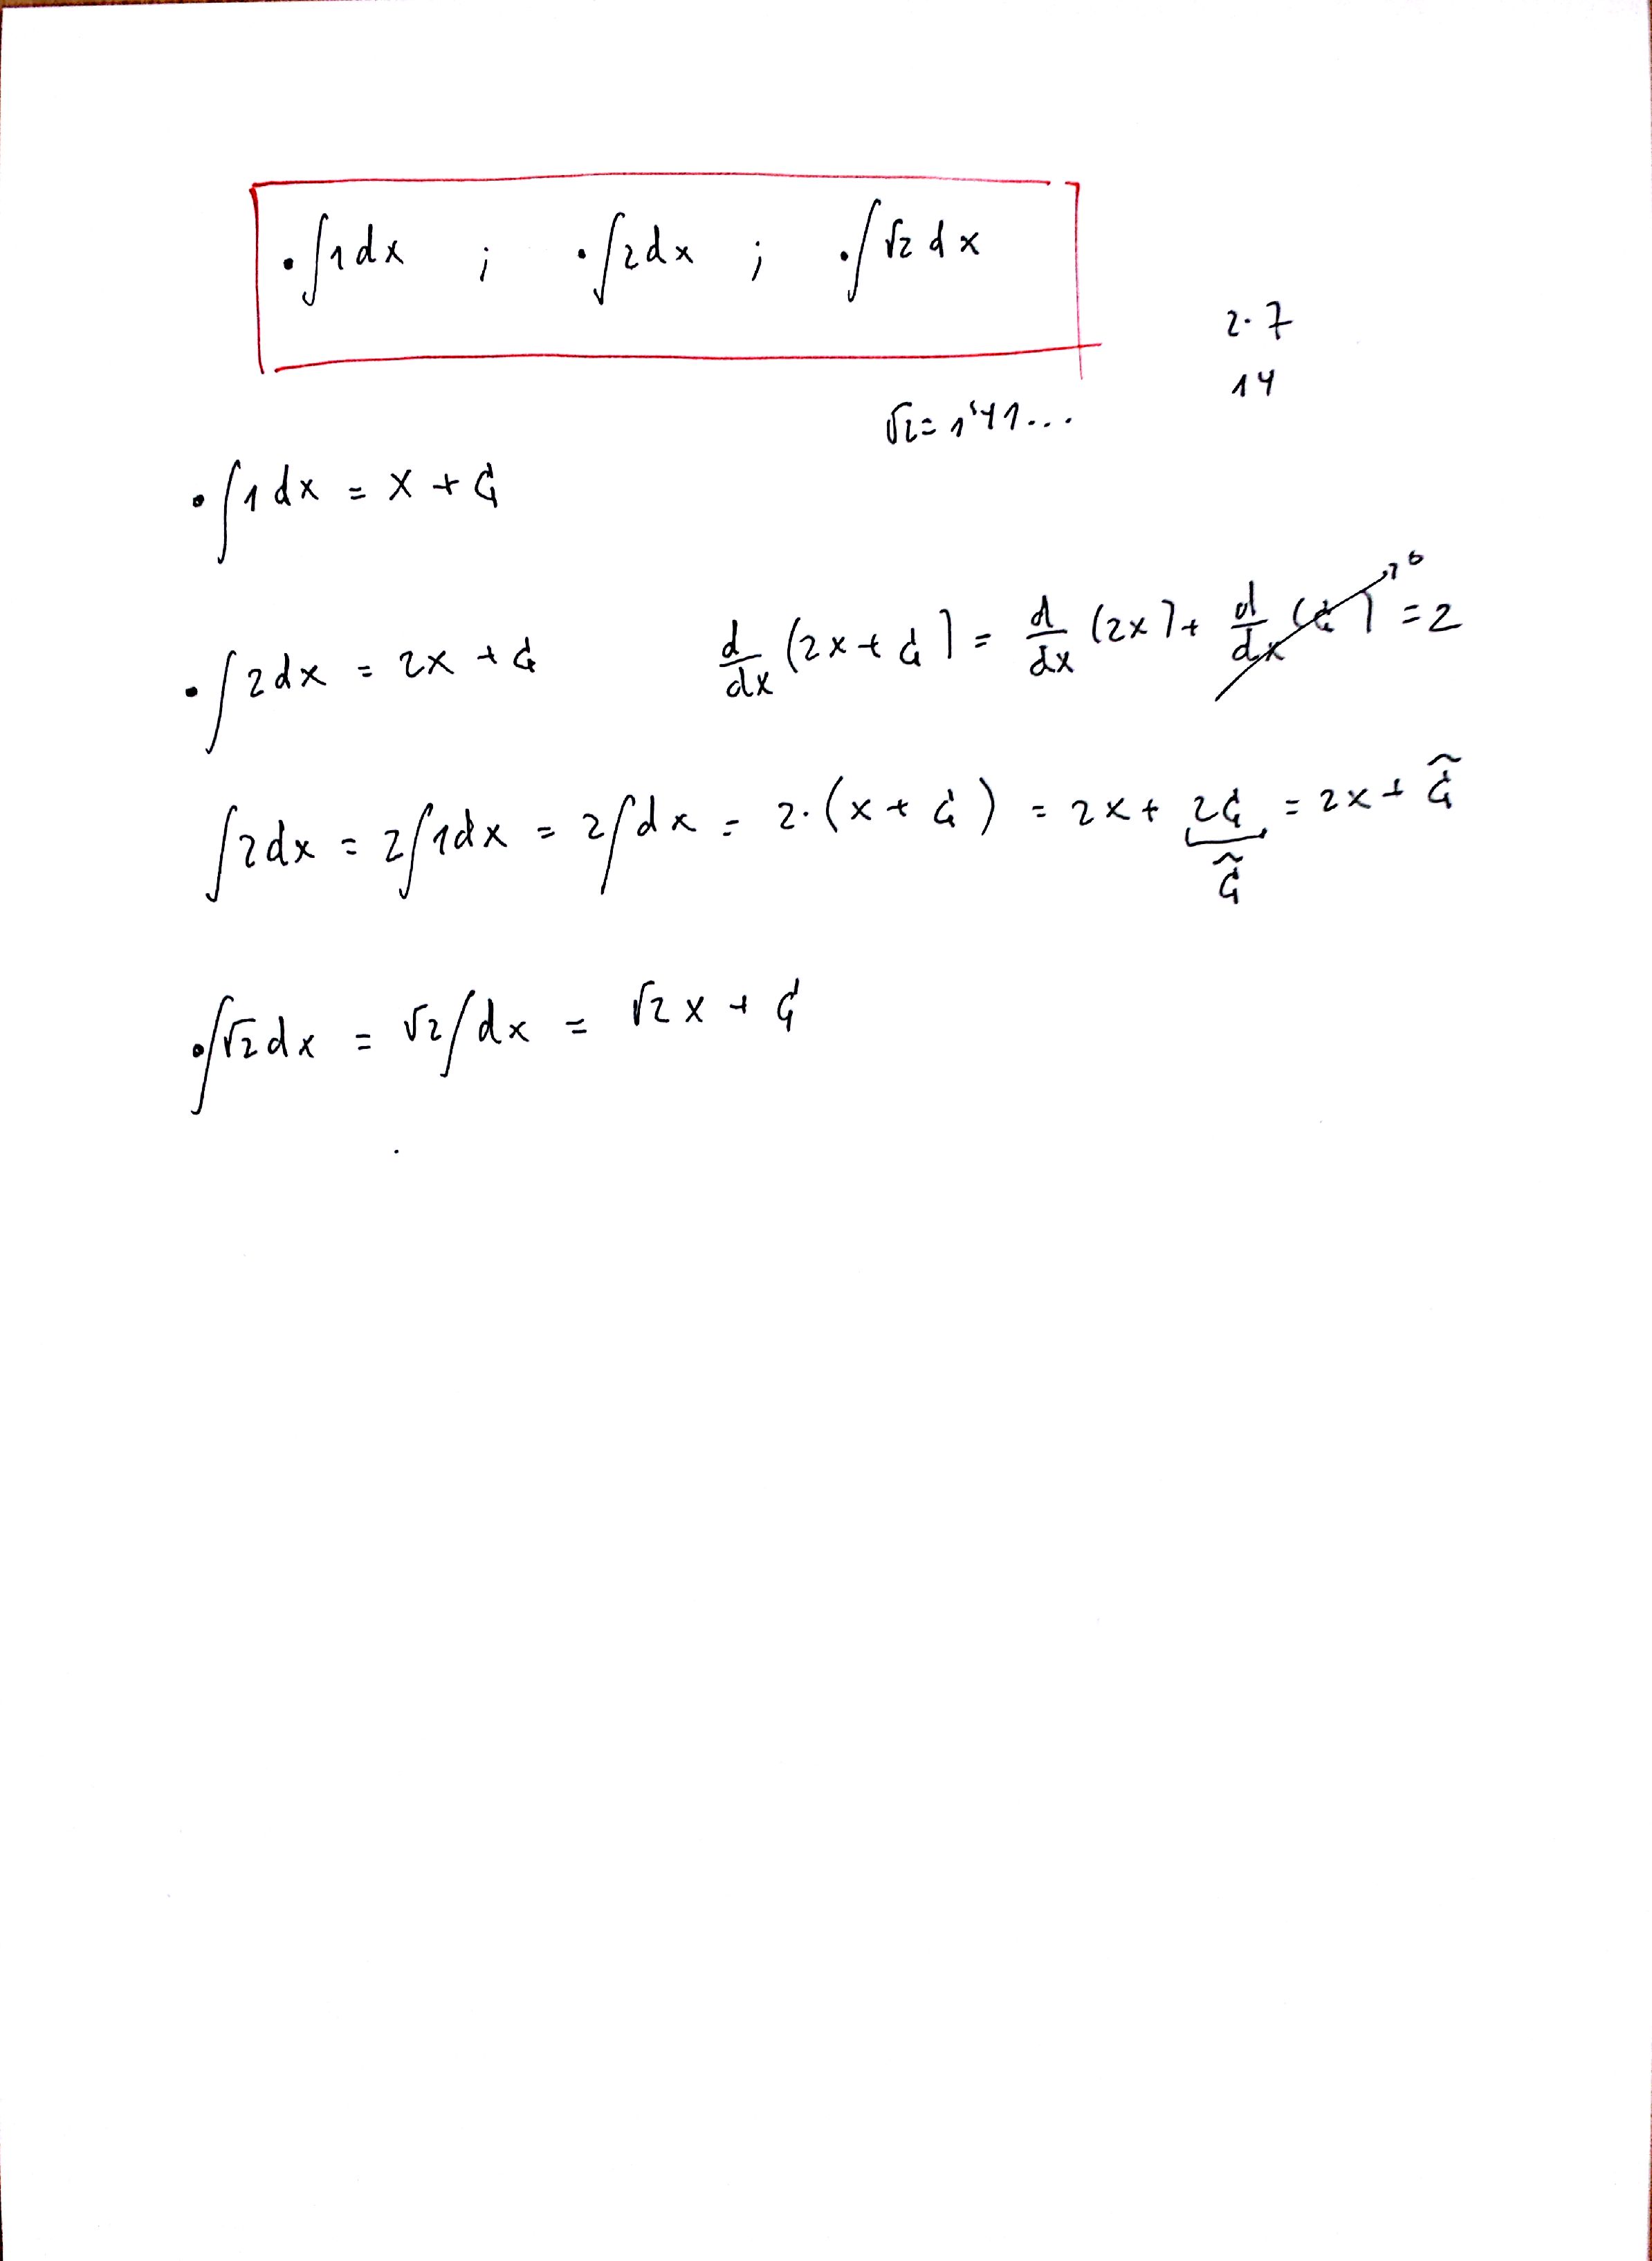 • ∫1dx ; • ∫2dx ; • ∫√2 dx
2·7
14
√2 = 1'41...
• ∫1dx = x + C
• ∫2dx = 2x + C    d/dx (2x + C) = d/dx (2x) + d/dx (C) → 0 = 2
∫2dx = 2∫1dx = 2∫dx = 2·(x + C) = 2x + 2C = 2x + C̃
C̃
• ∫√2dx = √2∫dx = √2 x + C